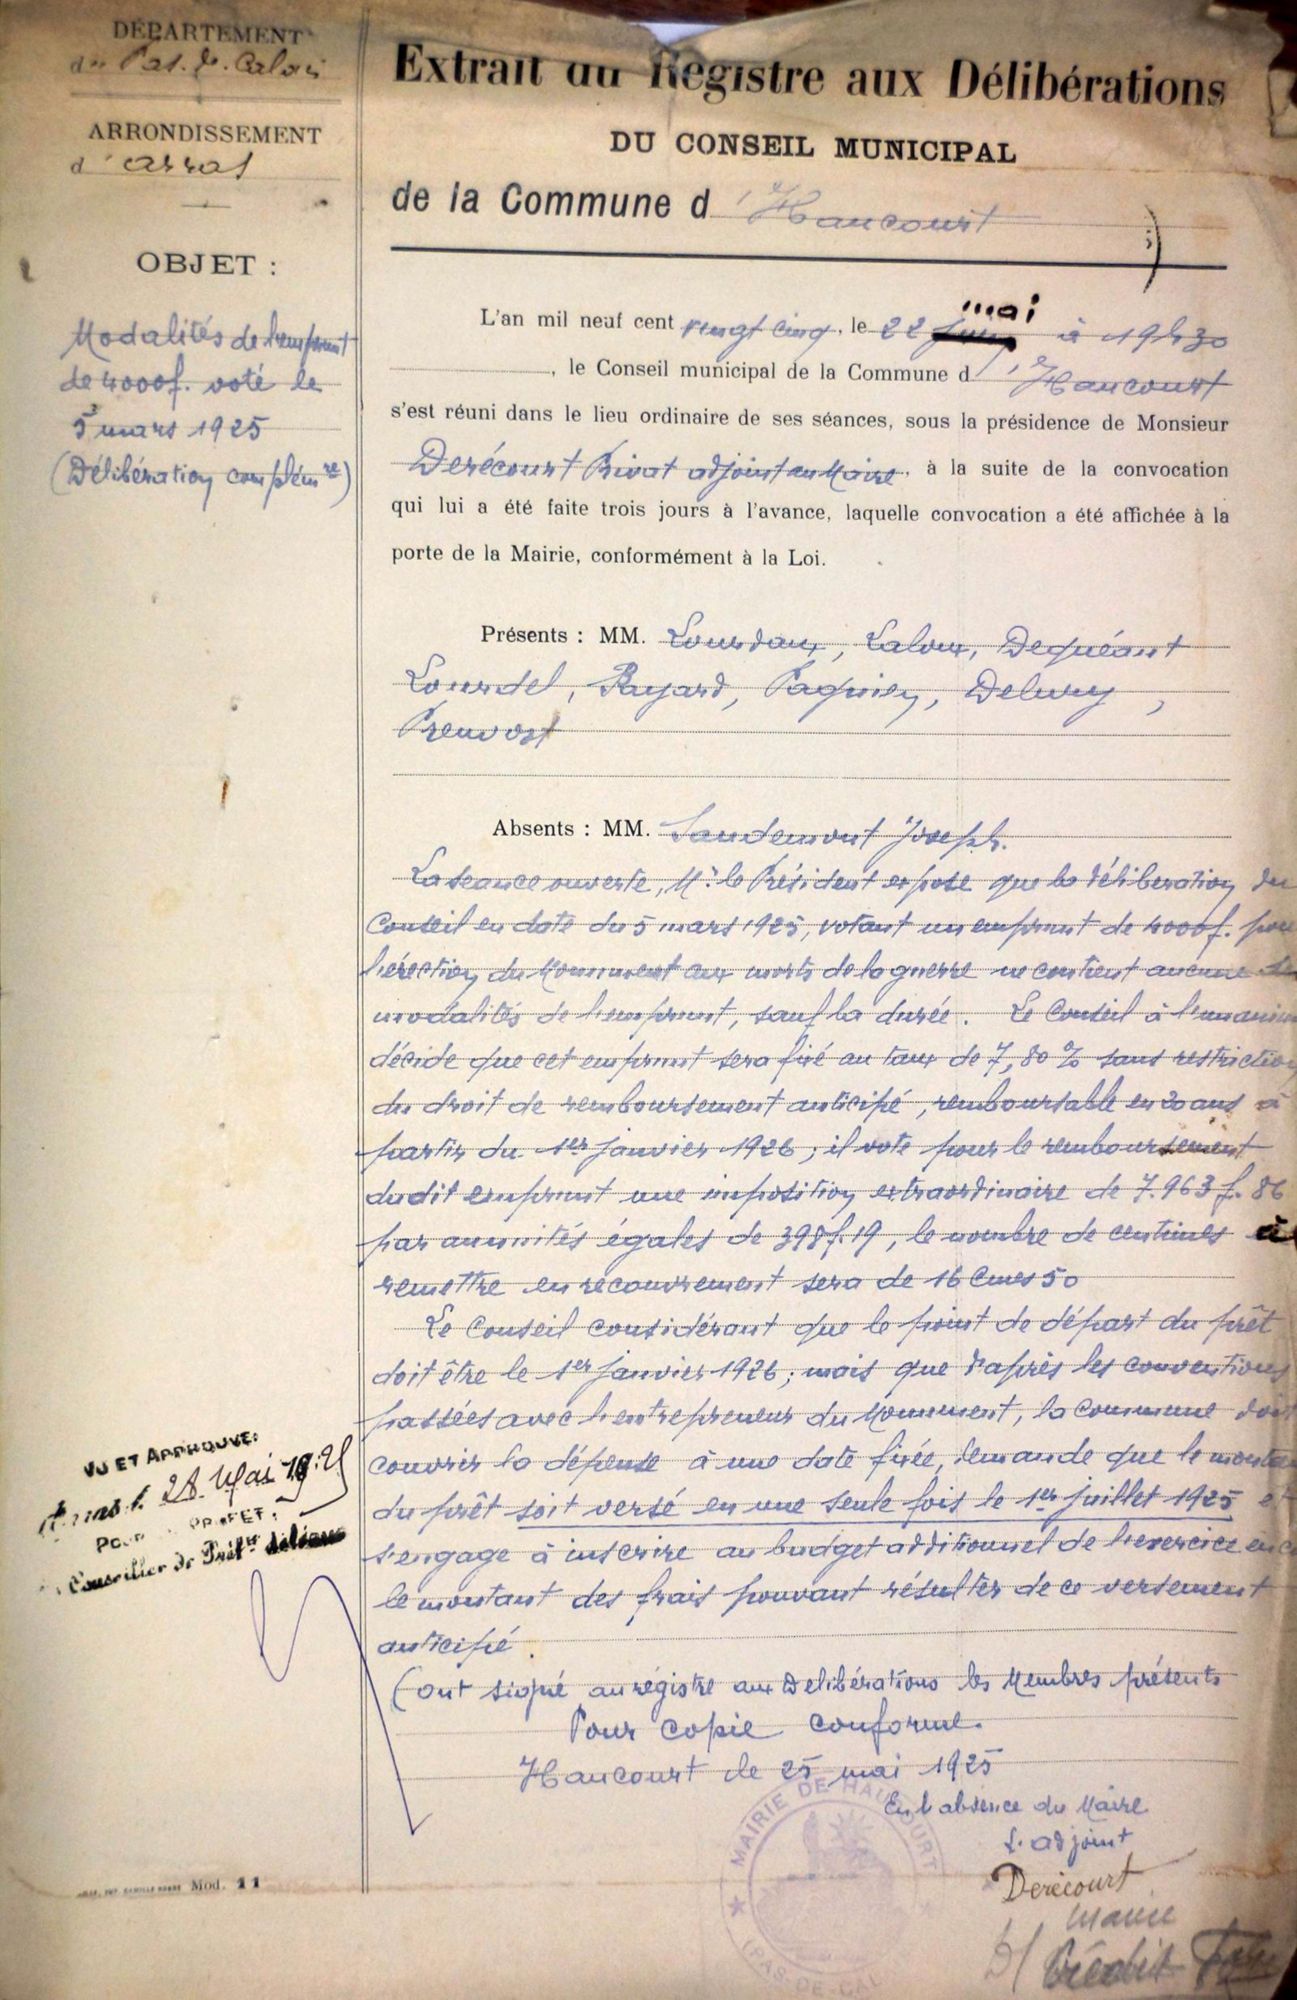 DÉPARTEMENT
du Pas-de-Calais
ARRONDISSEMENT
d'Arras
OBJET :
Modalités de l'emprunt
de 4000f. voté le
5 mars 1925
(Délibération complémre)
Extrait du Registre aux Délibérations
DU CONSEIL MUNICIPAL
de la Commune d'Haucourt
L'an mil neuf cent vingt cinq, le 22 mai à 19h30
, le Conseil municipal de la Commune d'Haucourt
s'est réuni dans le lieu ordinaire de ses séances, sous la présidence de Monsieur
Derécourt Privat adjoint au Maire, à la suite de la convocation
qui lui a été faite trois jours à l'avance, laquelle convocation a été affichée à la
porte de la Mairie, conformément à la Loi.
Présents : MM. Lourdaux, Laloux, Dequéant
Lourdel, Payard, Paquien, Delury,
Prenvost
Absents : MM. Saudemont Joseph.
La séance ouverte, Mr le Président expose que la délibération du
Conseil en date du 5 mars 1925, votant un emprunt de 4000f. pour
l'érection du Monument aux morts de la guerre ne contient aucune de
modalités de l'emprunt, sauf la durée. Le Conseil à l'unanimi
décide que cet emprunt sera fixé au taux de 7,80 % sans restriction
du droit de remboursement anticipé, remboursable en 20 ans à
partir du 1er janvier 1926 ; il vote pour le remboursement
dudit emprunt une imposition extraordinaire de 7.963 f. 86
par annuités égales de 398f.19, le nombre de centimes à
remettre en recouvrement sera de 16 Cmes 50
Le Conseil considérant que le point de départ du prêt
doit être le 1er janvier 1926 ; mais que d'après les conventions
passées avec l'entrepreneur du Monument, la commune doit
couvrir la dépense à une date fixée, demande que le montan
du prêt soit versé en une seule fois le 1er juillet 1925 et
s'engage à inscrire au budget additionnel de l'exercice en c
le montant des frais pouvant résulter de ce versement
anticipé.
(ont signé au régistre aux Delibérations les Membres présents
Pour copie conforme.
Haucourt le 25 mai 1925
En l'absence du Maire
L'adjoint
Derécourt
VU ET APPROUVÉ:
Arras l. 28 Mai 1925
POUR LE PRÉFET:
Conseiller de Préfre délégué
MAIRIE DE HAUCOURT
(PAS-DE-CALAIS)
Mod. 11